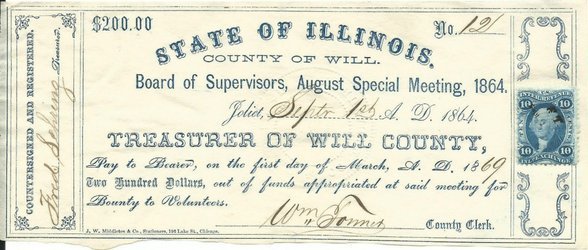 $200.00
No. 12
STATE OF ILLINOIS.
COUNTY OF WILL.
Board of Supervisors, August Special Meeting, 1864.
Joliet, Septr. 1st A. D. 1864.
TREASURER OF WILL COUNTY,
Pay to Bearer, on the first day of March, A. D. 1869
Two Hundred Dollars, out of funds appropriated at said meeting for
Bounty to Volunteers.
Wm Tonner
County Clerk.
J. W. Middleton & Co., Stationers, 196 Lake St., Chicago.
COUNTERSIGNED AND REGISTERED,
Fred Treasurer.
10 10
10 10